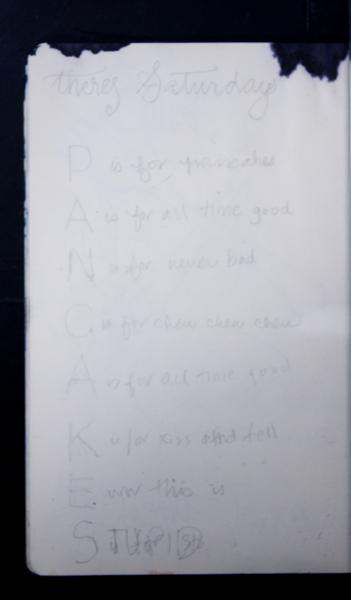 theres Saturday
P is for pancakes
A is for all time good
N is for never bad
C is for chew chew chew
A is for all time good
K is for kiss and tell
E this is
S STUPID